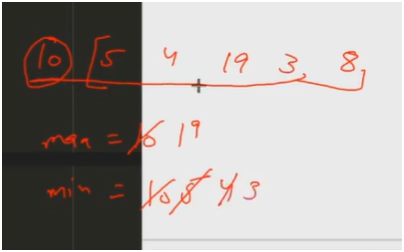 10 [5 4 19 3, 8]
max = 10 19
min = 10 5 4 3